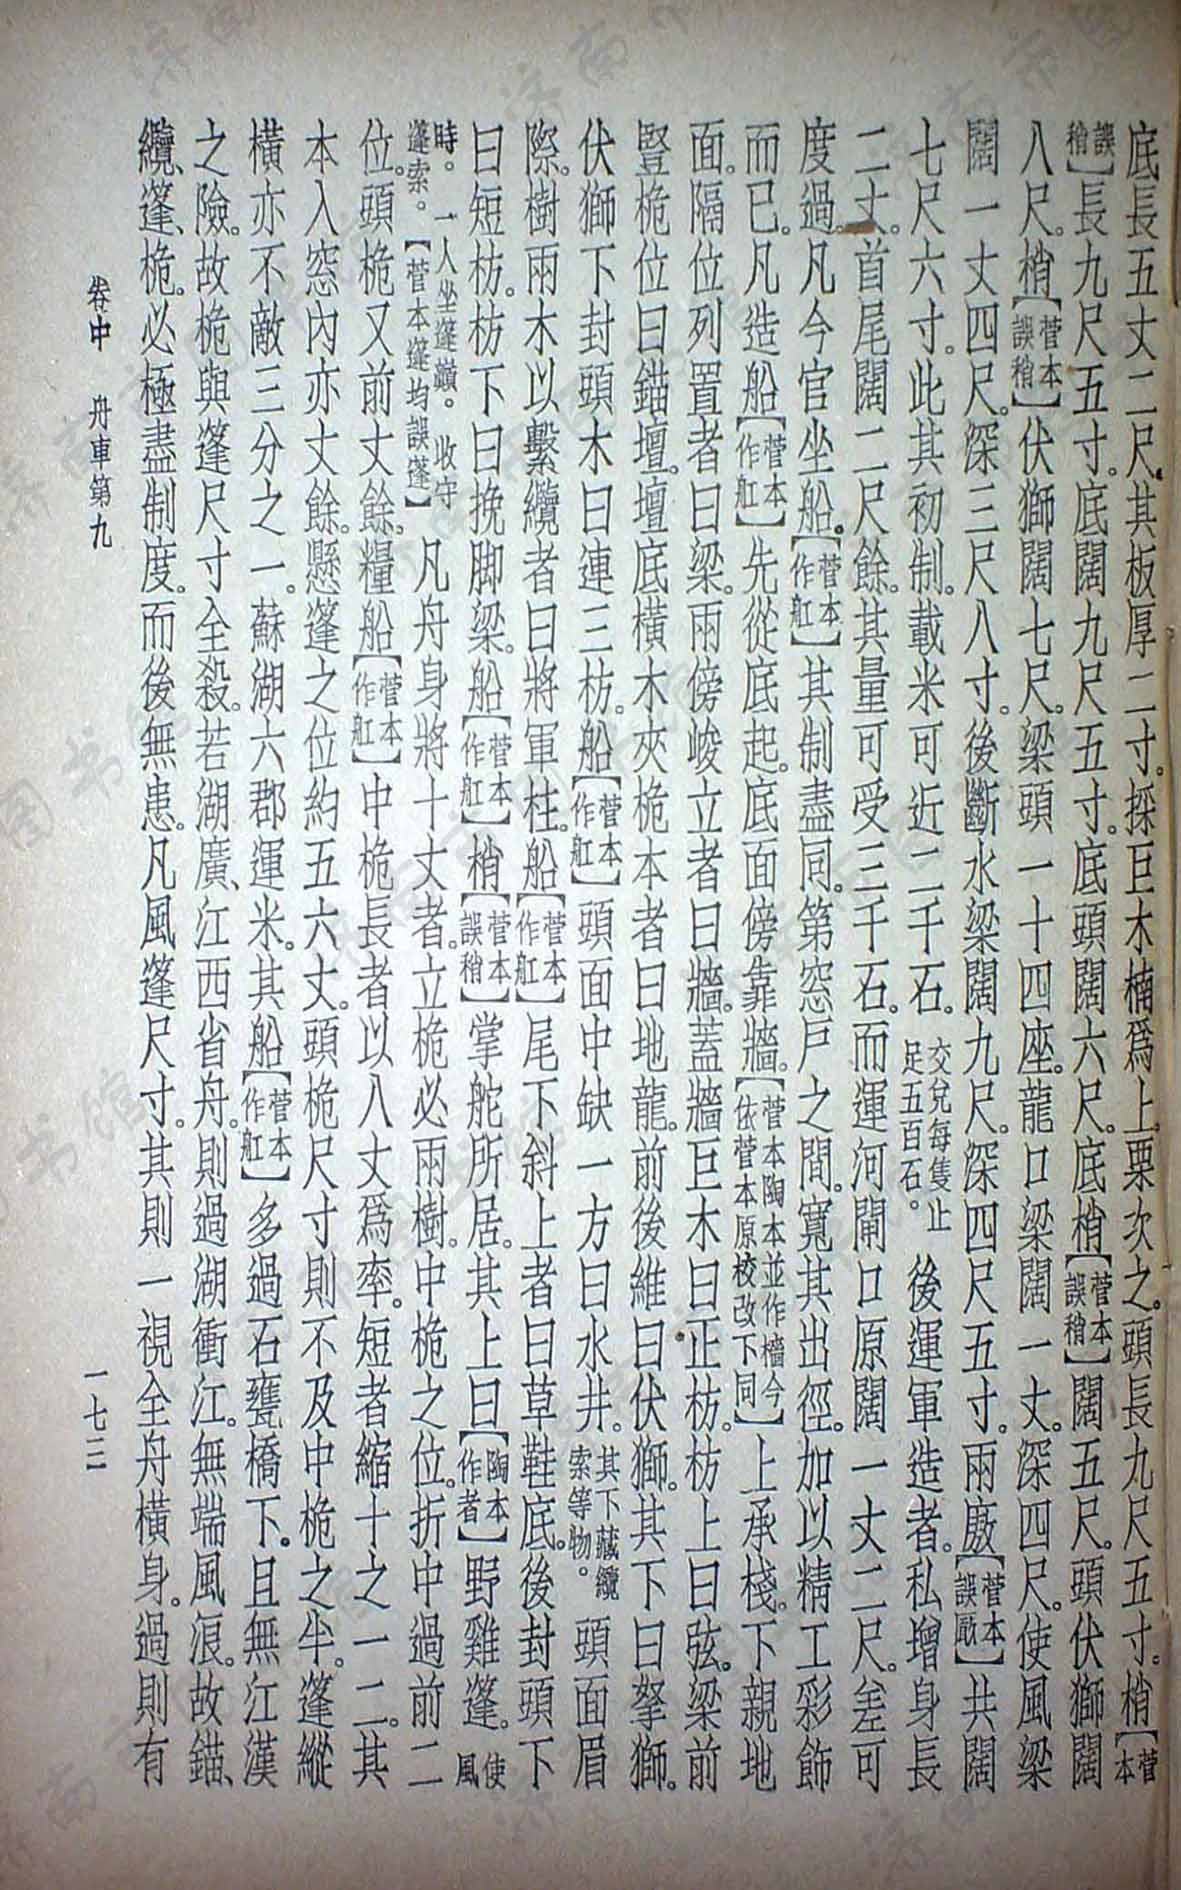 底長五丈二尺。其板厚二寸。採巨木楠爲上。栗次之。頭長九尺五寸。梢【菅本
誤稍】長九尺五寸。底闊九尺五寸。底頭闊六尺。底梢【菅本誤稍】闊五尺。頭伏獅闊
八尺。梢【菅本誤稍】伏獅闊七尺。梁頭一十四座。龍口梁闊一丈。深四尺。使風梁
闊一丈四尺。深三尺八寸。後斷水梁闊九尺。深四尺五寸。兩廒【菅本誤厫】共闊
七尺六寸。此其初制。載米可近二千石。交兌每隻止足五百石。後運軍造者。私增身長
二丈。首尾闊二尺餘。其量可受三千石。而運河閘口原闊一丈二尺。差可
度過。凡今官坐船。【菅本作舡】其制盡同。第窓戶之間。寬其出徑。加以精工彩飾
而已。凡造船【菅本作舡】先從底起。底面傍靠牆。【菅本陶本並作檣今依菅本原校改下同】上承棧。下親地
面。隔位列置者曰梁。兩傍峻立者曰牆。蓋牆巨木曰正枋。枋上曰弦。梁前
豎桅位曰錨壇。壇底橫木夾桅本者曰地龍。前後維曰伏獅。其下曰拏獅。
伏獅下封頭木曰連三枋。船【菅本作舡】頭面中缺一方曰水井。其下藏纜索等物。頭面眉
際。樹兩木以繫纜者曰將軍柱。船【菅本作舡】尾下斜上者曰草鞋底。後封頭下
曰短枋。枋下曰挽脚梁。船【菅本作舡】梢【菅本誤稍】掌舵所居。其上曰【陶本作者】野雞篷。使風
時。一人坐篷巔。收守篷索。【菅本篷均誤蓬】凡舟身將十丈者。立桅必兩樹。中桅之位。折中過前二
位。頭桅又前丈餘。糧船【菅本作舡】中桅長者以八丈爲率。短者縮十之一二。其
本入窓內亦丈餘。懸篷之位約五六丈。頭桅尺寸則不及中桅之半。篷縱
橫亦不敵三分之一。蘇湖六郡運米。其船【菅本作舡】多過石甕橋下。且無江漢
之險。故桅與篷尺寸全殺。若湖廣、江西省舟。則過湖衝江。無端風浪。故錨、
纜、篷、桅。必極盡制度。而後無患。凡風篷尺寸。其則一視全舟橫身。過則有
卷中　舟車第九
一七三